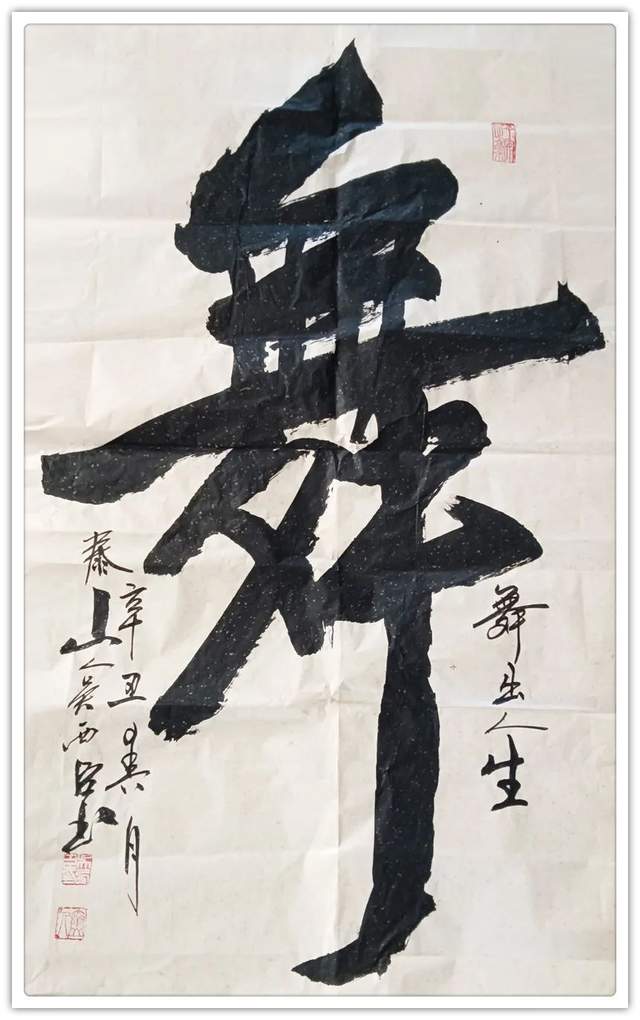 舞
舞出人生
辛丑春月
泰山人吴西臣书